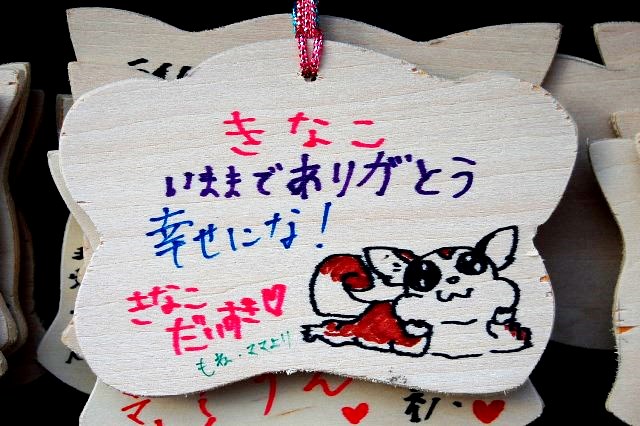 きなこ
いままでありがとう
幸せにな!
きなこ
だいすき♡
もね・ママより